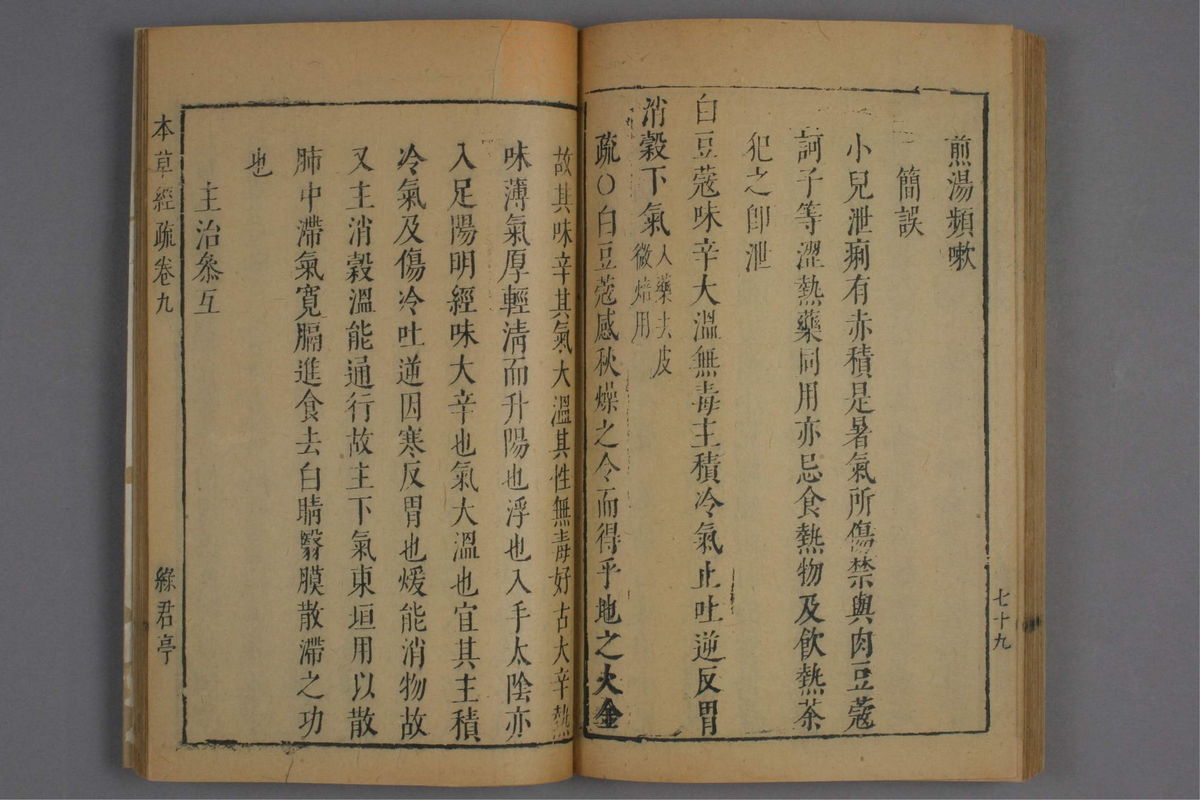 煎湯頻嗽
簡誤
小兒泄痢有赤積是暑氣所傷禁與肉豆蔻
訶子等澀熱藥同用亦忌食熱物及飲熱茶
犯之卽泄
白豆蔻味辛大溫無毒主積冷氣止吐逆反胃
消穀下氣入藥去皮
微焙用
疏○白豆蔻感秋燥之令而得乎地之火金
七十九
故其味辛其氣大溫其性無毒好古大辛熱
味薄氣厚輕清而升陽也浮也入手太陰亦
入足陽明經味大辛也氣大溫也宜其主積
冷氣及傷冷吐逆因寒反胃也煖能消物故
又主消穀溫能通行故主下氣東垣用以散
肺中滯氣寬膈進食去白睛翳膜散滯之功
也
主治叅互
本草經疏卷九
綠君亭